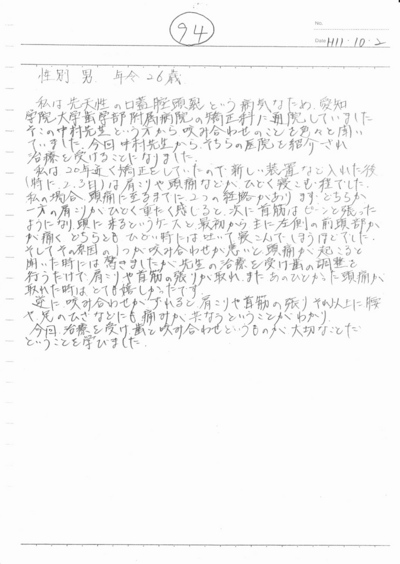 94
No.
Date H11・10・2
性別 男 年令 26歳
私は先天性の口蓋腔頭裂という病気なため、愛知
学院大学歯学部附属病院の矯正科に通院していました
そこの中村先生という方から咬み合わせのことを色々と聞い
ていました。今回中村先生から、そちらの医院を紹介され
治療を受けることになりました。
私は20年近く矯正をしていたので新しい装置など入れた後
(特に2,3日)は肩こりや頭痛などがひどく寝こむ程でした。
私の場合、頭痛に至るまでに2つの経路があります。どちらか
一方の肩こりがひどく重たく感じると、次に首筋はピーンと張った
ようになり頭に来るというケースと最初から主に左側の前頭部か
が痛く どちらともひどい時にはせいて寝こんでしまうほどでした。
そしてその原因の1つが咬み合わせが悪いと頭痛が起こると
聞いた時には驚きましたが、先生の治療を受け歯の調整を
行うだけで、肩こりや首筋の張りが取れ、また あのひどかった頭痛が
取れた時は とても嬉しかったです
逆に咬み合わせがずれると肩こりや首筋の張り それ以上に腰
や足のひざなどにも痛みがともなうということがわかり
今回、治療を受け歯と咬み合わせというものが大切なことだ
ということを学びました。